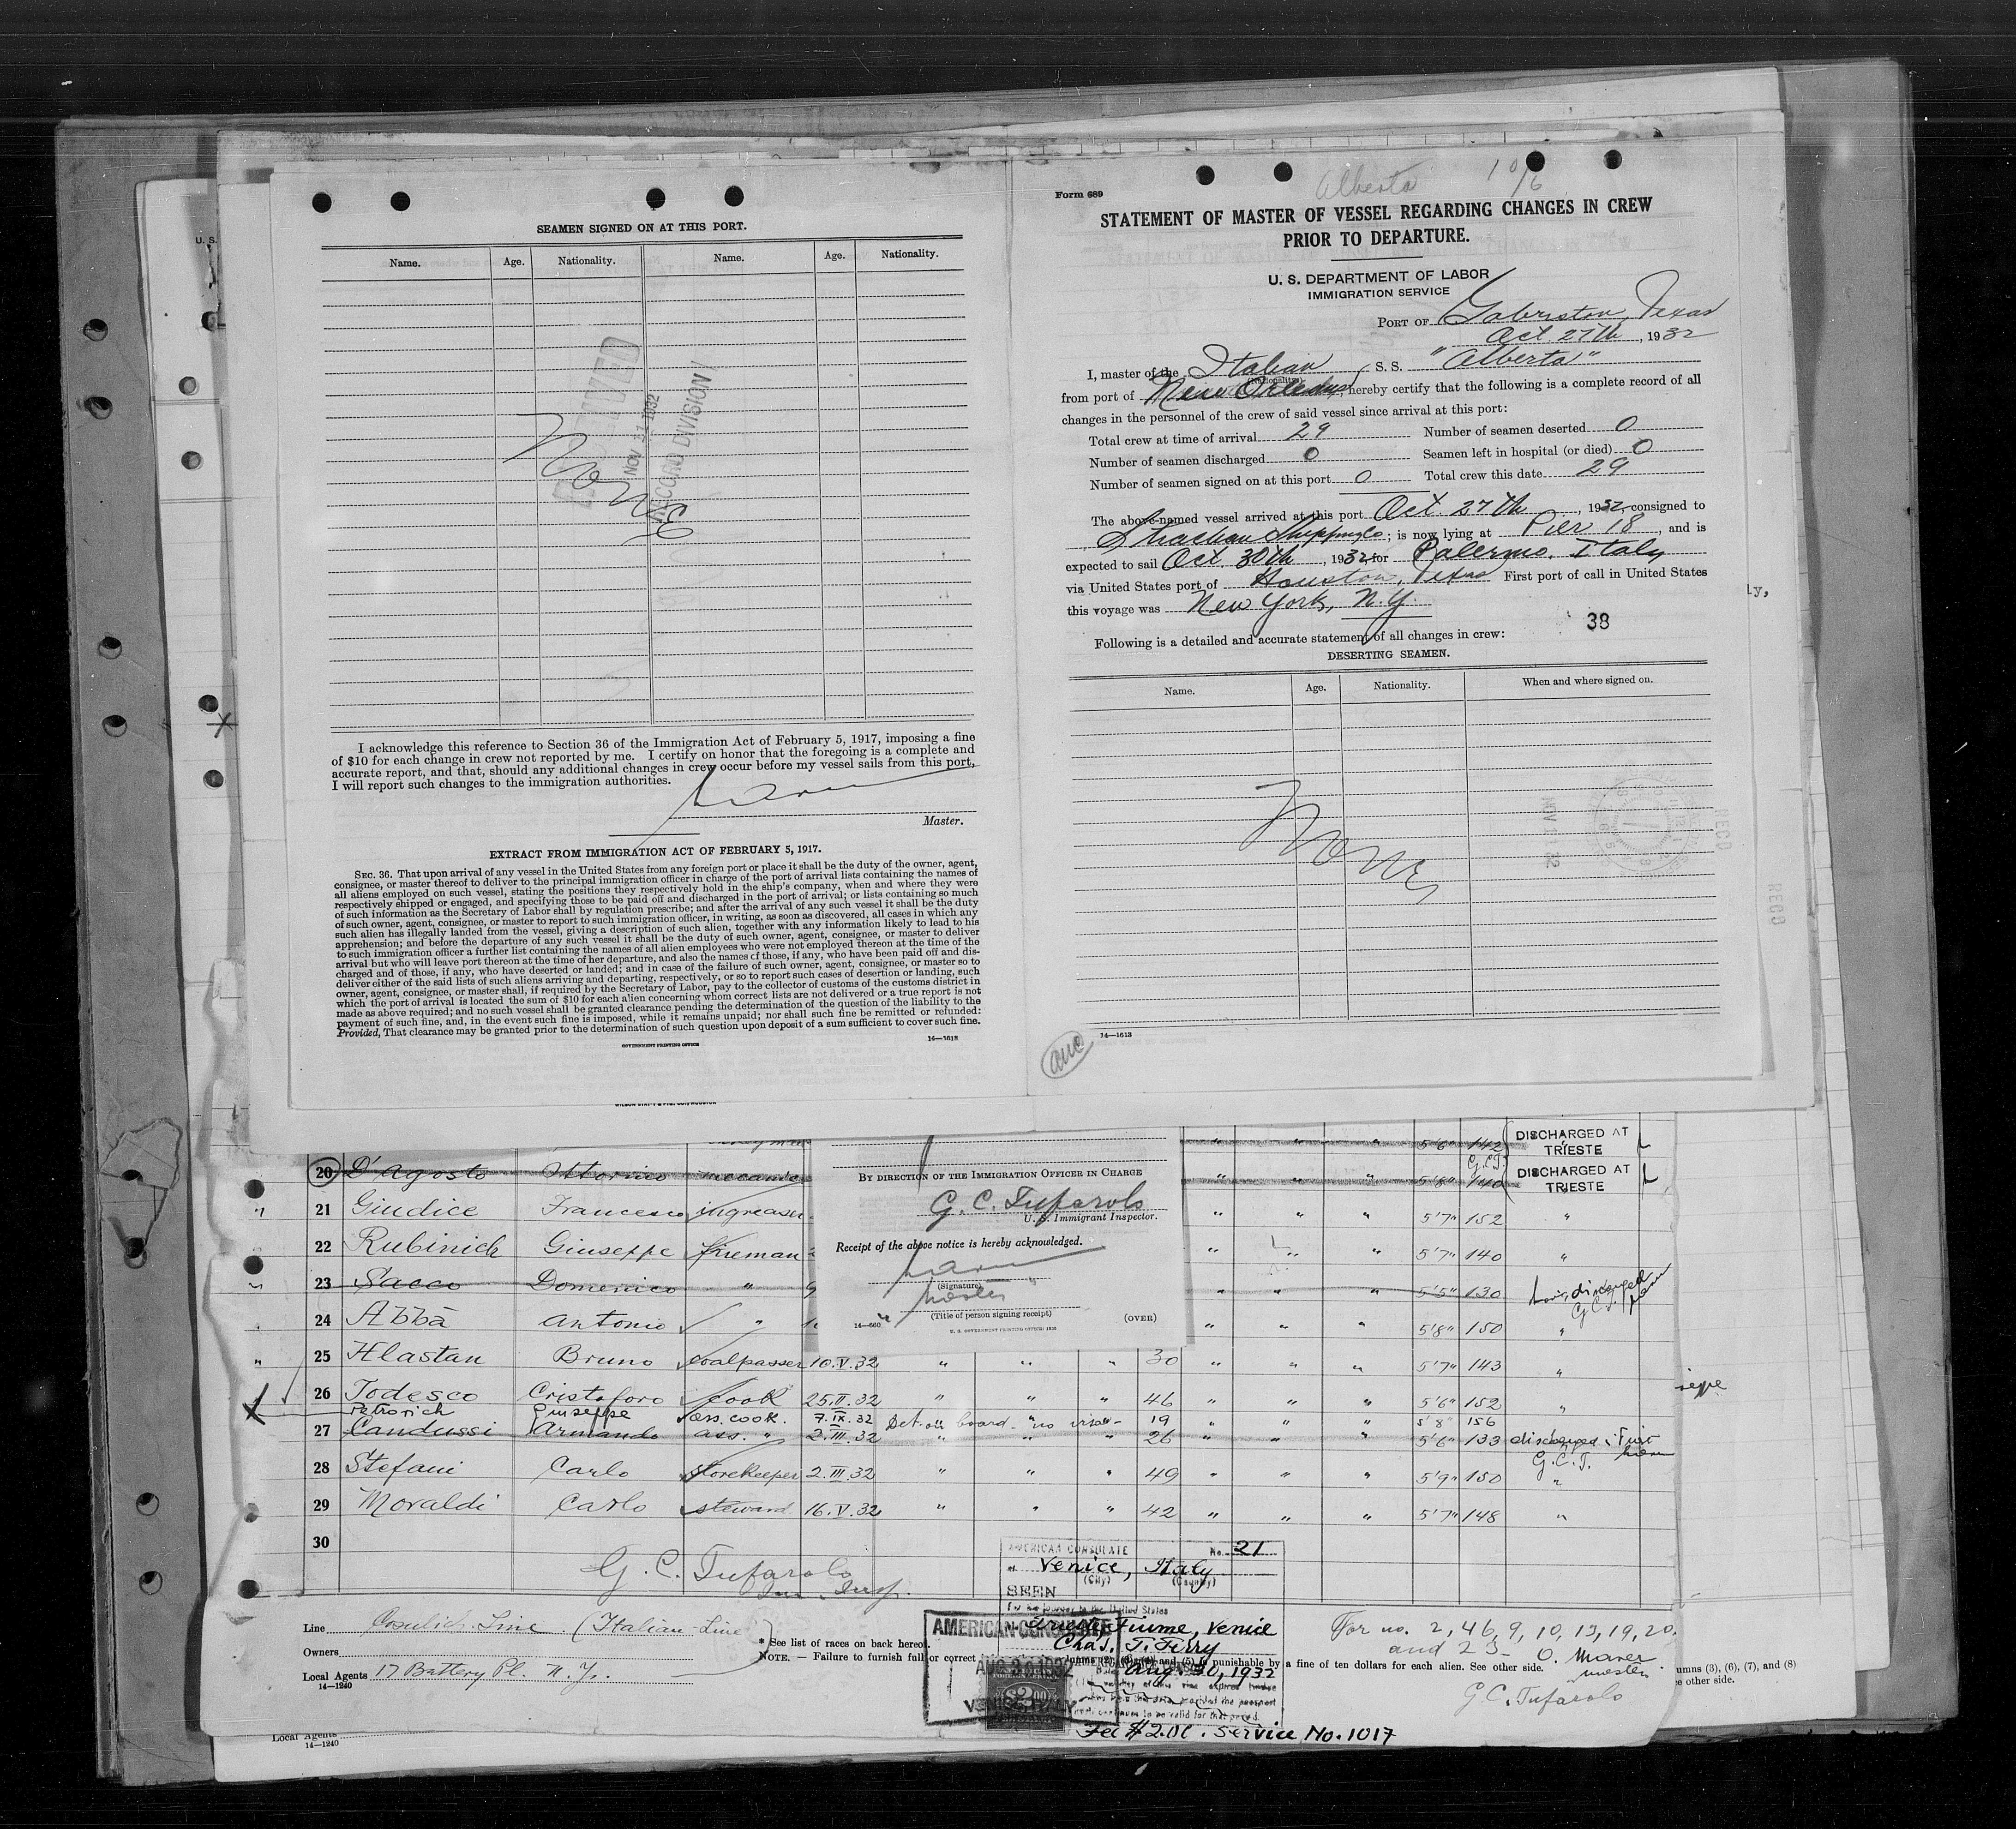 SEAMEN SIGNED ON AT THIS PORT.
Name. Age. Nationality. Name. Age. Nationality.
RECEIVED
NOV 11 1932
RECORD DIVISION
None
I acknowledge this reference to Section 36 of the Immigration Act of February 5, 1917, imposing a fine
of $10 for each change in crew not reported by me. I certify on honor that the foregoing is a complete and
accurate report, and that, should any additional changes in crew occur before my vessel sails from this port,
I will report such changes to the immigration authorities.
Master.
EXTRACT FROM IMMIGRATION ACT OF FEBRUARY 5, 1917.
SEC. 36. That upon arrival of any vessel in the United States from any foreign port or place it shall be the duty of the owner, agent,
consignee, or master thereof to deliver to the principal immigration officer in charge of the port of arrival lists containing the names of
all aliens employed on such vessel, stating the positions they respectively hold in the ship's company, when and where they were
respectively shipped or engaged, and specifying those to be paid off and discharged in the port of arrival; or lists containing so much
of such information as the Secretary of Labor shall by regulation prescribe; and after the arrival of any such vessel it shall be the duty
of such owner, agent, consignee, or master to report to such immigration officer, in writing, as soon as discovered, all cases in which any
such alien has illegally landed from the vessel, giving a description of such alien, together with any information likely to lead to his
apprehension; and before the departure of any such vessel it shall be the duty of such owner, agent, consignee, or master to deliver
to such immigration officer a further list containing the names of all alien employees who were not employed thereon at the time of the
arrival but who will leave port thereon at the time of her departure, and also the names of those, if any, who have been paid off and dis-
charged and of those, if any, who have deserted or landed; and in case of the failure of such owner, agent, consignee, or master so to
deliver either of the said lists of such aliens arriving and departing, respectively, or so to report such cases of desertion or landing, such
owner, agent, consignee, or master shall, if required by the Secretary of Labor, pay to the collector of customs of the customs district in
which the port of arrival is located the sum of $10 for each alien concerning whom correct lists are not delivered or a true report is not
made as above required; and no such vessel shall be granted clearance pending the determination of the question of the liability to the
payment of such fine, and, in the event such fine is imposed, while it remains unpaid; nor shall such fine be remitted or refunded:
Provided, That clearance may be granted prior to the determination of such question upon deposit of a sum sufficient to cover such fine.
GOVERNMENT PRINTING OFFICE 14—1613
Alberta 10/6
Form 689
STATEMENT OF MASTER OF VESSEL REGARDING CHANGES IN CREW
PRIOR TO DEPARTURE.
U. S. DEPARTMENT OF LABOR
IMMIGRATION SERVICE
PORT OF Galveston, Texas
Oct 27th, 1932
I, master of the Italian S. S. "Alberta"
(Nationality)
from port of New Orleans, hereby certify that the following is a complete record of all
changes in the personnel of the crew of said vessel since arrival at this port:
Total crew at time of arrival 29 Number of seamen deserted 0
Number of seamen discharged 0 Seamen left in hospital (or died) 0
Number of seamen signed on at this port 0 Total crew this date 29
The above-named vessel arrived at this port Oct 27th, 1932, consigned to
Strachan Shipping Co; is now lying at Pier 18, and is
expected to sail Oct 30th, 1932, for Palermo, Italy
via United States port of Houston, Texas First port of call in United States
this voyage was New York, N.Y.
38
Following is a detailed and accurate statement of all changes in crew:
DESERTING SEAMEN.
Name. Age. Nationality. When and where signed on.
None
NOV 1 1932
RECD
RECD
14—1613
5'6" 142 DISCHARGED AT TRIESTE
G.C.T.
20 D'Agosto Ottorino 5'8" 140 DISCHARGED AT TRIESTE
21 Giudice Francesco 5'7" 152 "
22 Rubinich Giuseppe fireman 5'7" 140 "
23 Sacco Domenico " 5'5" 130 discharged G.C.T.
24 Abbà Antonio " 5'8" 150 "
25 Hlastan Bruno coalpasser 10.V.32 " " " 30 " " " 5'7" 143 "
26 Todesco Cristoforo cook 25.II.32 " " " 46 " " " 5'6" 152 "
Petrovich Giuseppe ass. cook. 7.IX.32 Det. on board - no visa - 19 " " " 5'8" 156
27 Candussi Armando ass. " 2.III.32 " " " 26 " " " 5'6" 133 discharged
G.C.T.
28 Stefani Carlo storekeeper 2.III.32 " " " 49 " " " 5'9" 150 "
29 Moraldi Carlo steward 16.V.32 " " " 42 " " " 5'7" 148 "
30
BY DIRECTION OF THE IMMIGRATION OFFICER IN CHARGE
G. C. Tufarolo
U. S. Immigrant Inspector.
Receipt of the above notice is hereby acknowledged.
(Signature)
master
(Title of person signing receipt)
14—660 (OVER)
U. S. GOVERNMENT PRINTING OFFICE: 1930
G. C. Tufarolo
Im. Insp.
AMERICAN CONSULATE No. 21
at Venice, Italy
(City) (Country)
SEEN
For the journey to the United States
Trieste, Fiume, Venice
Chas. T. Terry
Date Aug. 30, 1932
AMERICAN CONSULATE
AUG 30 1932
VENICE, ITALY
$2.00
Fee $2.00. Service No. 1017
Line Cosulich Line (Italian Line)
Owners
Local Agents 17 Battery Pl. N. Y.
14—1240
* See list of races on back hereof.
NOTE. — Failure to furnish full or correct
and (5) is punishable by a fine of ten dollars for each alien. See other side.
For no. 2, 46, 9, 10, 13, 19, 20.
and 23- O.
master
G. C. Tufarolo
umns (3), (6), (7), and (8)
e other side.
Local Agents
14—1240